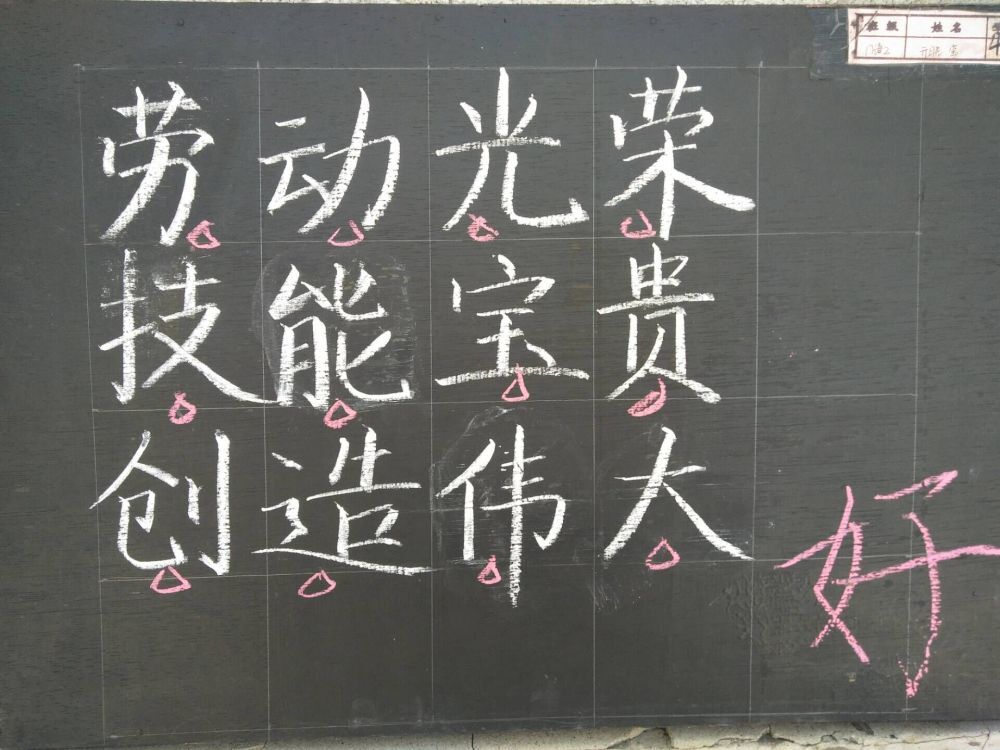 班级 姓名
劳动光荣
技能宝贵
创造伟大
好